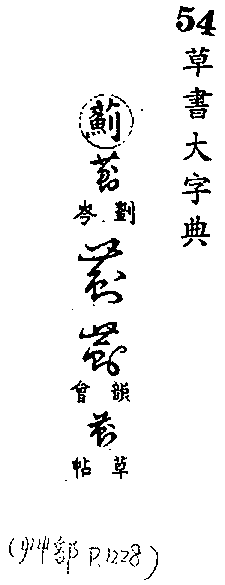 54
草書大字典
薊
劉岑
韻會
草帖
(艸部 P.1228)